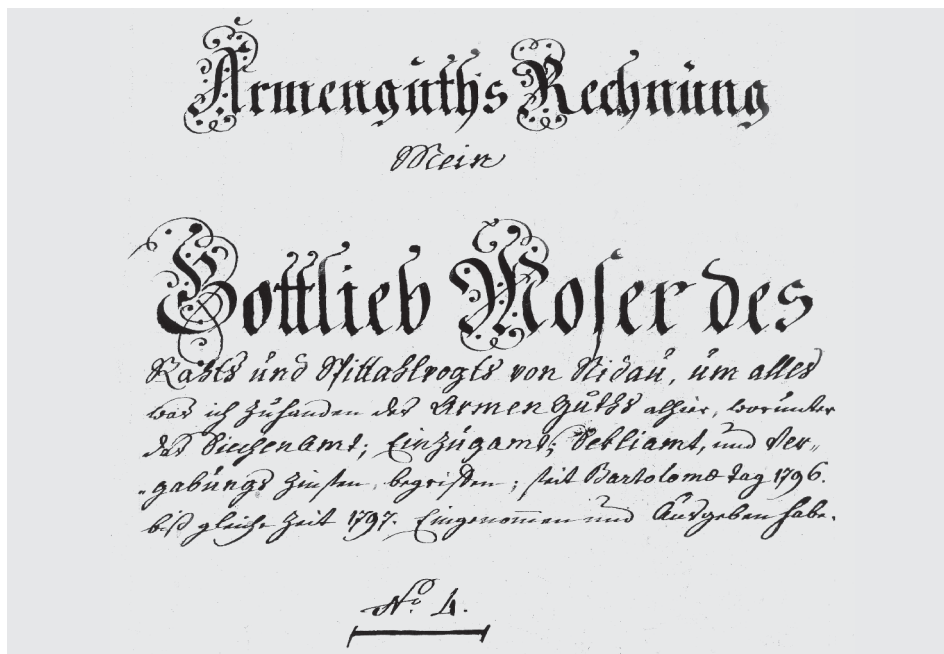 Armenguths Rechnung
Mein
Gottlieb Moser des
Rahts und Spittahlvogts von Nidau, um alles
was ich zuhanden des Armen Guths alhier, worunter
das Siechenamt; Einzugamt; Sekliamt, und Ver„
„gabungs Zinsen, begriffen; seit Bartolome tag 1796.
biß gleiche Zeit 1797. Eingenommen und Ausgeben habe.
No. 4.